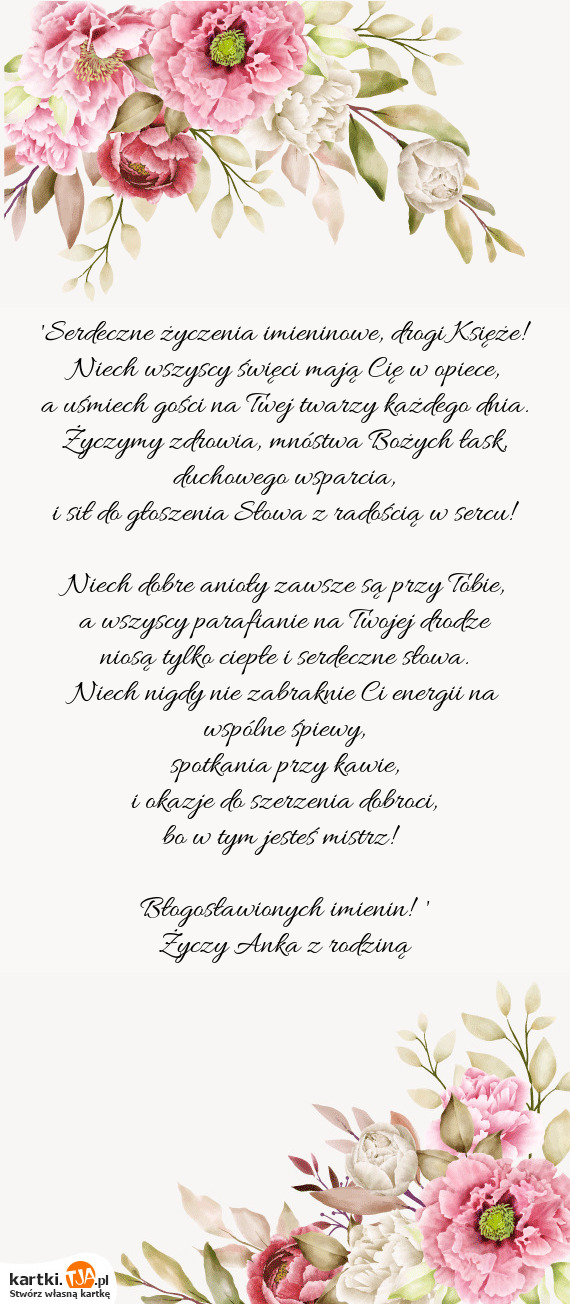 'Serdeczne życzenia imieninowe, drogi Księże!
Niech wszyscy święci mają Cię w opiece,
a uśmiech gości na Twej twarzy każdego dnia.
Życzymy zdrowia, mnóstwa Bożych łask,
duchowego wsparcia,
i sił do głoszenia Słowa z radością w sercu!
Niech dobre anioły zawsze są przy Tobie,
a wszyscy parafianie na Twojej drodze
niosą tylko ciepłe i serdeczne słowa.
Niech nigdy nie zabraknie Ci energii na
wspólne śpiewy,
spotkania przy kawie,
i okazje do szerzenia dobroci,
bo w tym jesteś mistrz!
Błogosławionych imienin! '
Życzy Anka z rodziną
kartki.TJA.pl
Stwórz własną kartkę